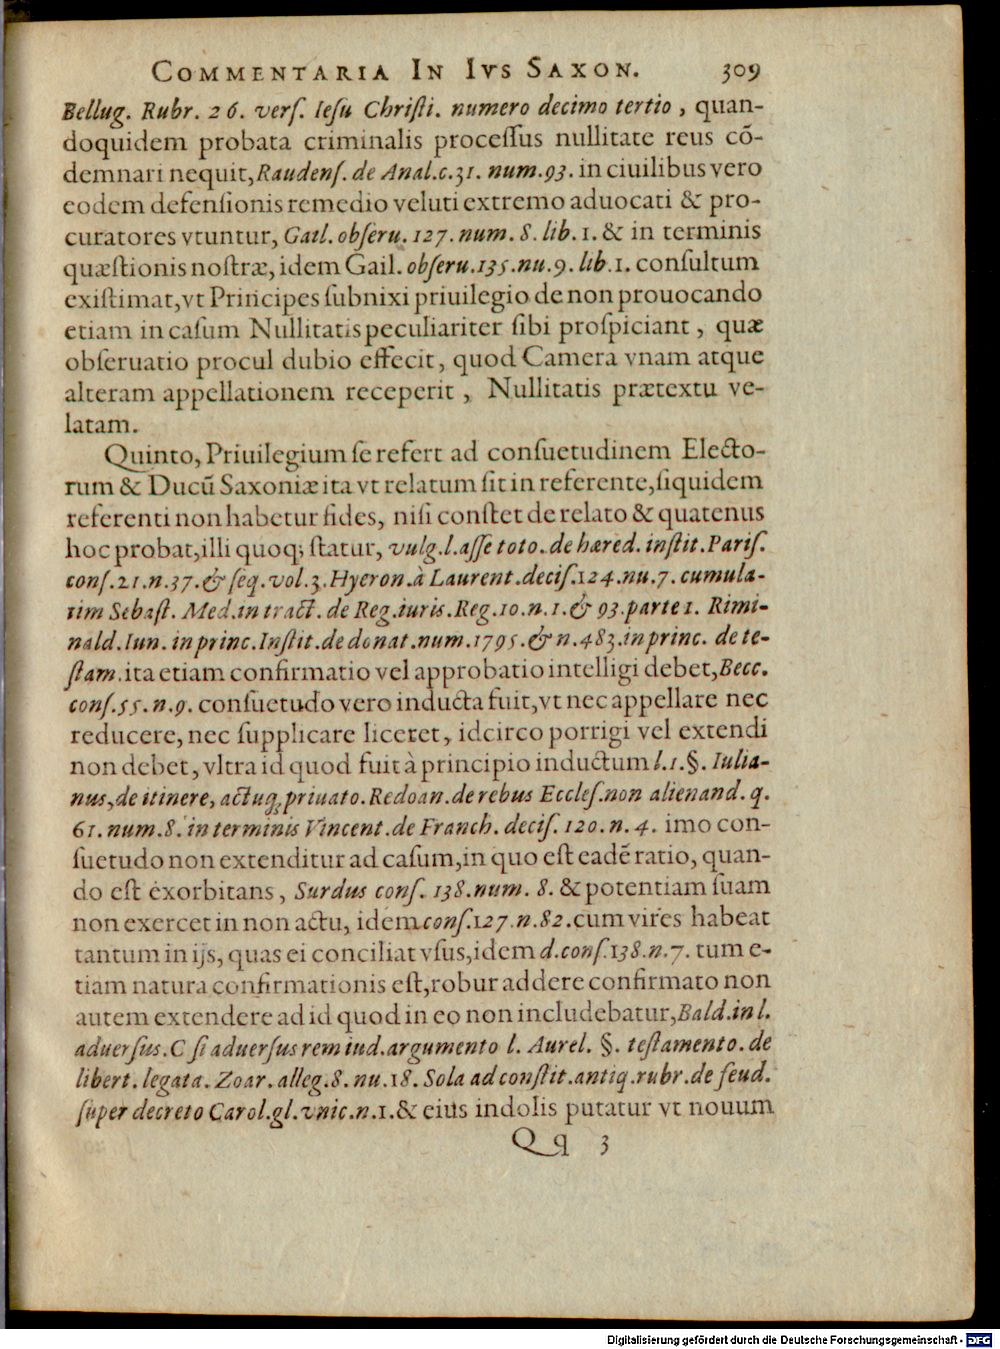 COMMENTARIA IN IVS SAXON. 309
Bellug. Rubr. 26. verſ. Ieſu Chriſti. numero decimo tertio, quan-
doquidem probata criminalis proceſſus nullitate reus cō-
demnari nequit, Raudenſ. de Anal.c.31. num.93. in ciuilibus vero
eodem defenſionis remedio veluti extremo aduocati & pro-
curatores vtuntur, Gail. obſeru. 127. num. 8. lib. 1. & in terminis
quæſtionis noſtræ, idem Gail. obſeru.135.nu.9. lib.1. conſultum
exiſtimat, vt Principes ſubnixi priuilegio de non prouocando
etiam in caſum Nullitatis peculiariter ſibi proſpiciant, quæ
obſeruatio procul dubio effecit, quod Camera vnam atque
alteram appellationem receperit, Nullitatis prætextu ve-
latam.
Quinto, Priuilegium ſe refert ad conſuetudinem Electo-
rum & Ducū Saxoniæ ita vt relatum ſit in referente, ſiquidem
referenti non habetur fides, niſi conſtet de relato & quatenus
hoc probat, illi quoq; ſtatur, vulg.l.aſſe toto. de hæred. inſtit. Pariſ.
conſ.21.n.37.& ſeq.vol.3. Hyeron.à Laurent.deciſ.124.nu.7. cumula-
tim Sebaſt. Med. in tract. de Reg.iuris.Reg.10.n.1.& 93.parte 1. Rimi-
nald.Iun. in princ.Inſtit.de donat.num.1795.& n.483.in princ. de te-
ſtam. ita etiam confirmatio vel approbatio intelligi debet, Becc.
conſ.55.n.9. conſuetudo vero inducta fuit, vt nec appellare nec
reducere, nec ſupplicare liceret, idcirco porrigi vel extendi
non debet, vltra id quod fuit à principio inductum l.1.§. Iulia-
nus, de itinere, actuq; priuato. Redoan. de rebus Eccleſ. non alienand. q.
61. num.8. in terminis Vincent. de Franch. deciſ. 120. n. 4. imo con-
ſuetudo non extenditur ad caſum, in quo eſt eadē ratio, quan-
do eſt exorbitans, Surdus conſ. 138. num. 8. & potentiam ſuam
non exercet in non actu, idem conſ.127.n.82. cum vires habeat
tantum in ijs, quas ei conciliat vſus, idem d.conſ.138.n.7. tum e-
tiam natura confirmationis eſt, robur addere confirmato non
autem extendere ad id quod in eo non includebatur, Bald.in l.
aduerſus. C ſi aduerſus rem iud. argumento l. Aurel. §. teſtamento. de
libert. legata. Zoar. alleg.8. nu.18. Sola ad conſtit.antiq.rubr.de feud.
ſuper decreto Carol.gl.vnic.n.1.& eius indolis putatur vt nouum
Qq 3
Digitalisierung gefördert durch die Deutsche Forschungsgemeinschaft - DFG